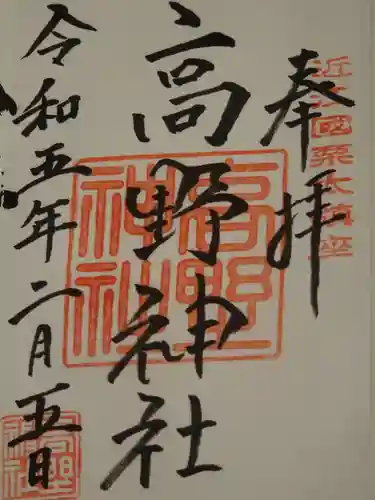 奉拝
近江國栗太鎮座
高野神社
高野神社
令和五年二月五日
高野神社